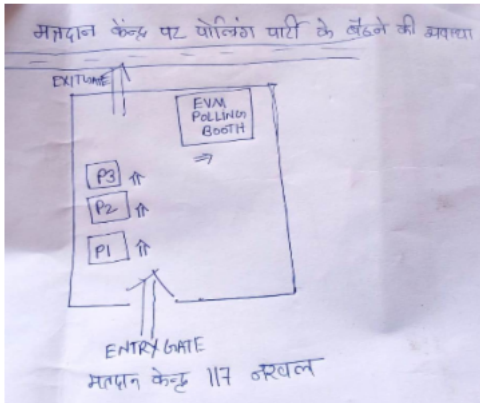 मतदान केन्द्र पर पोलिंग पार्टी के बैठने की व्यवस्था
EXITGATE
EVM
POLLING
BOOTH
P3
P2
P1
ENTRY GATE
मतदान केन्द्र 117 नरवल